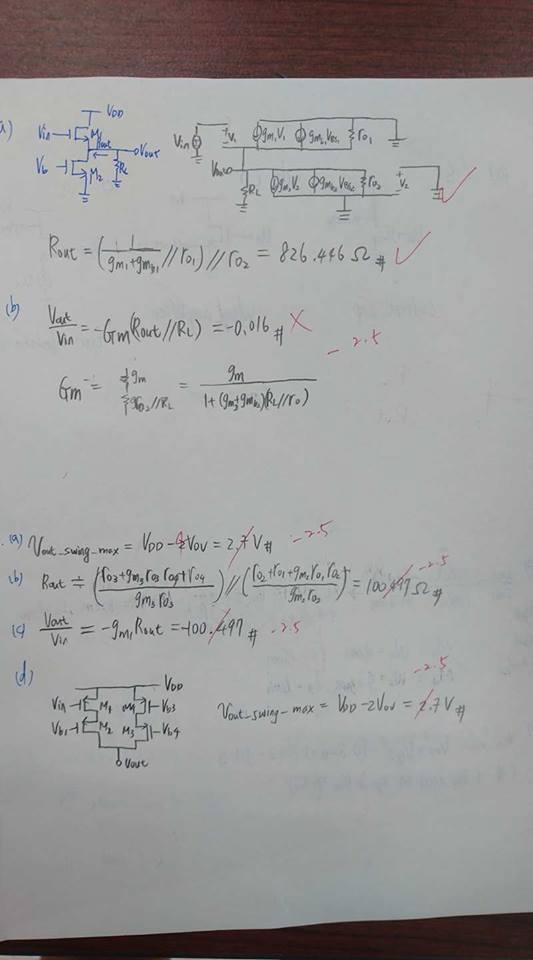 a)
VDD
Vin
M1
Rout
Vout
Vb
M2
RL
Vin
+ V1 -
gm1V1
gmb1VBS1
ro1
Vout
RL
gm2V2
gmb2VBS2
ro2
+ V2 -
Rout = (1/(gm1+gmb1) // ro1) // ro2 = 826.446 Ω #
(b)
Vout/Vin = -Gm(Rout // RL) = -0.016 #
- 2.5
Gm = gm/(1+(gm3+gmb3)(RL//ro))
(a) Vout_swing_max = VDD - 2VOV = 2.7V # -2.5
(b) Rout ≒ ((ro3+gm3ro3ro4+ro4)/(gm3ro3)) // ((ro2+ro1+gm2ro1ro2)/(gm2ro2)) = 100.497Ω # -2.5
(c) Vout/Vin = -gm1Rout = -100.497 # -2.5
(d)
VDD
Vin
M1
M4
Vb3
Vb1
M2
M3
Vb4
Vout
-2.5
Vout_swing_max = VDD - 2VOV = 2.7V #